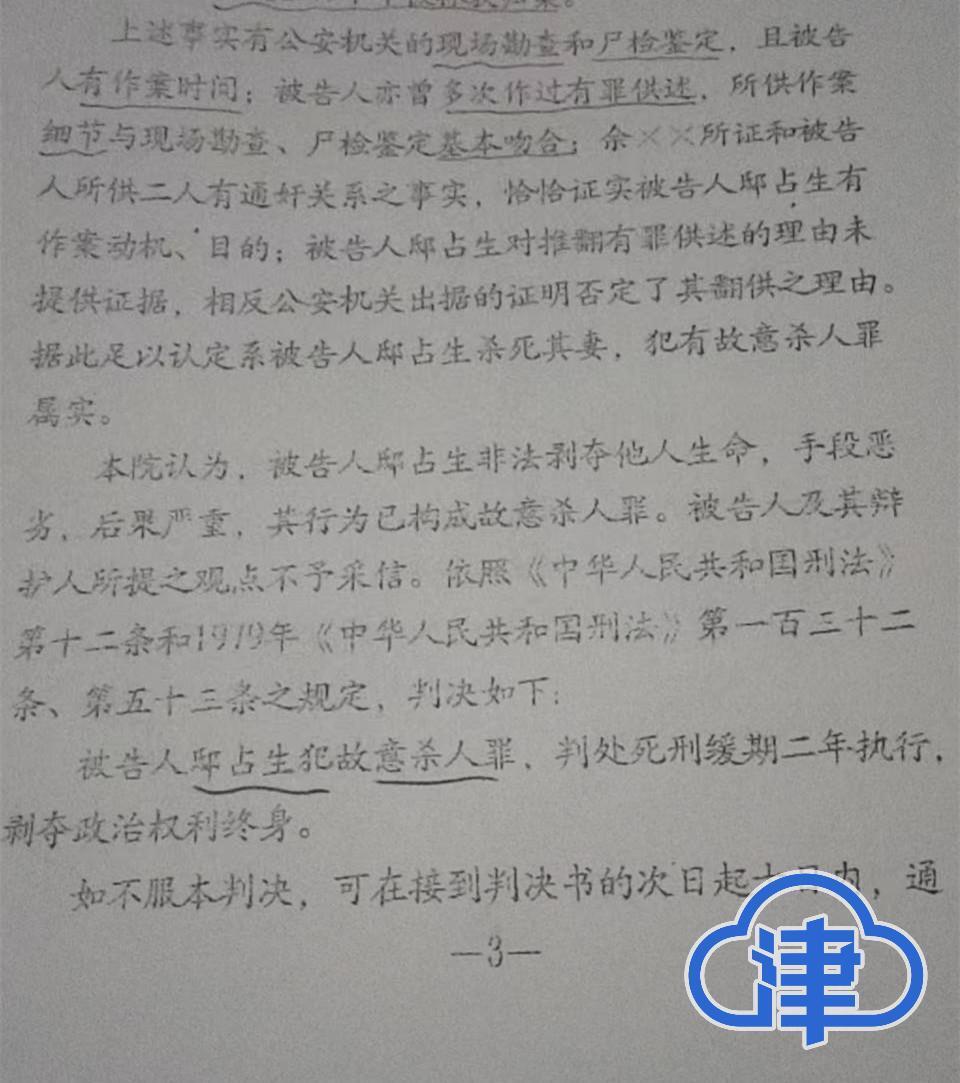 上述事实有公安机关的现场勘查和尸检鉴定，且被告
人有作案时间；被告人亦曾多次作过有罪供述，所供作案
细节与现场勘查、尸检鉴定基本吻合；余××所证和被告
人所供二人有通奸关系之事实，恰恰证实被告人邸占生有
作案动机、目的；被告人邸占生对推翻有罪供述的理由未
提供证据，相反公安机关出据的证明否定了其翻供之理由。
据此足以认定系被告人邸占生杀死其妻，犯有故意杀人罪
属实。
本院认为，被告人邸占生非法剥夺他人生命，手段恶
劣，后果严重，其行为已构成故意杀人罪。被告人及其辩
护人所提之观点不予采信。依照《中华人民共和国刑法》
第十二条和1979年《中华人民共和国刑法》第一百三十二
条、第五十三条之规定，判决如下：
被告人邸占生犯故意杀人罪，判处死刑缓期二年执行，
剥夺政治权利终身。
如不服本判决，可在接到判决书的次日起十日内，通
—3—
津